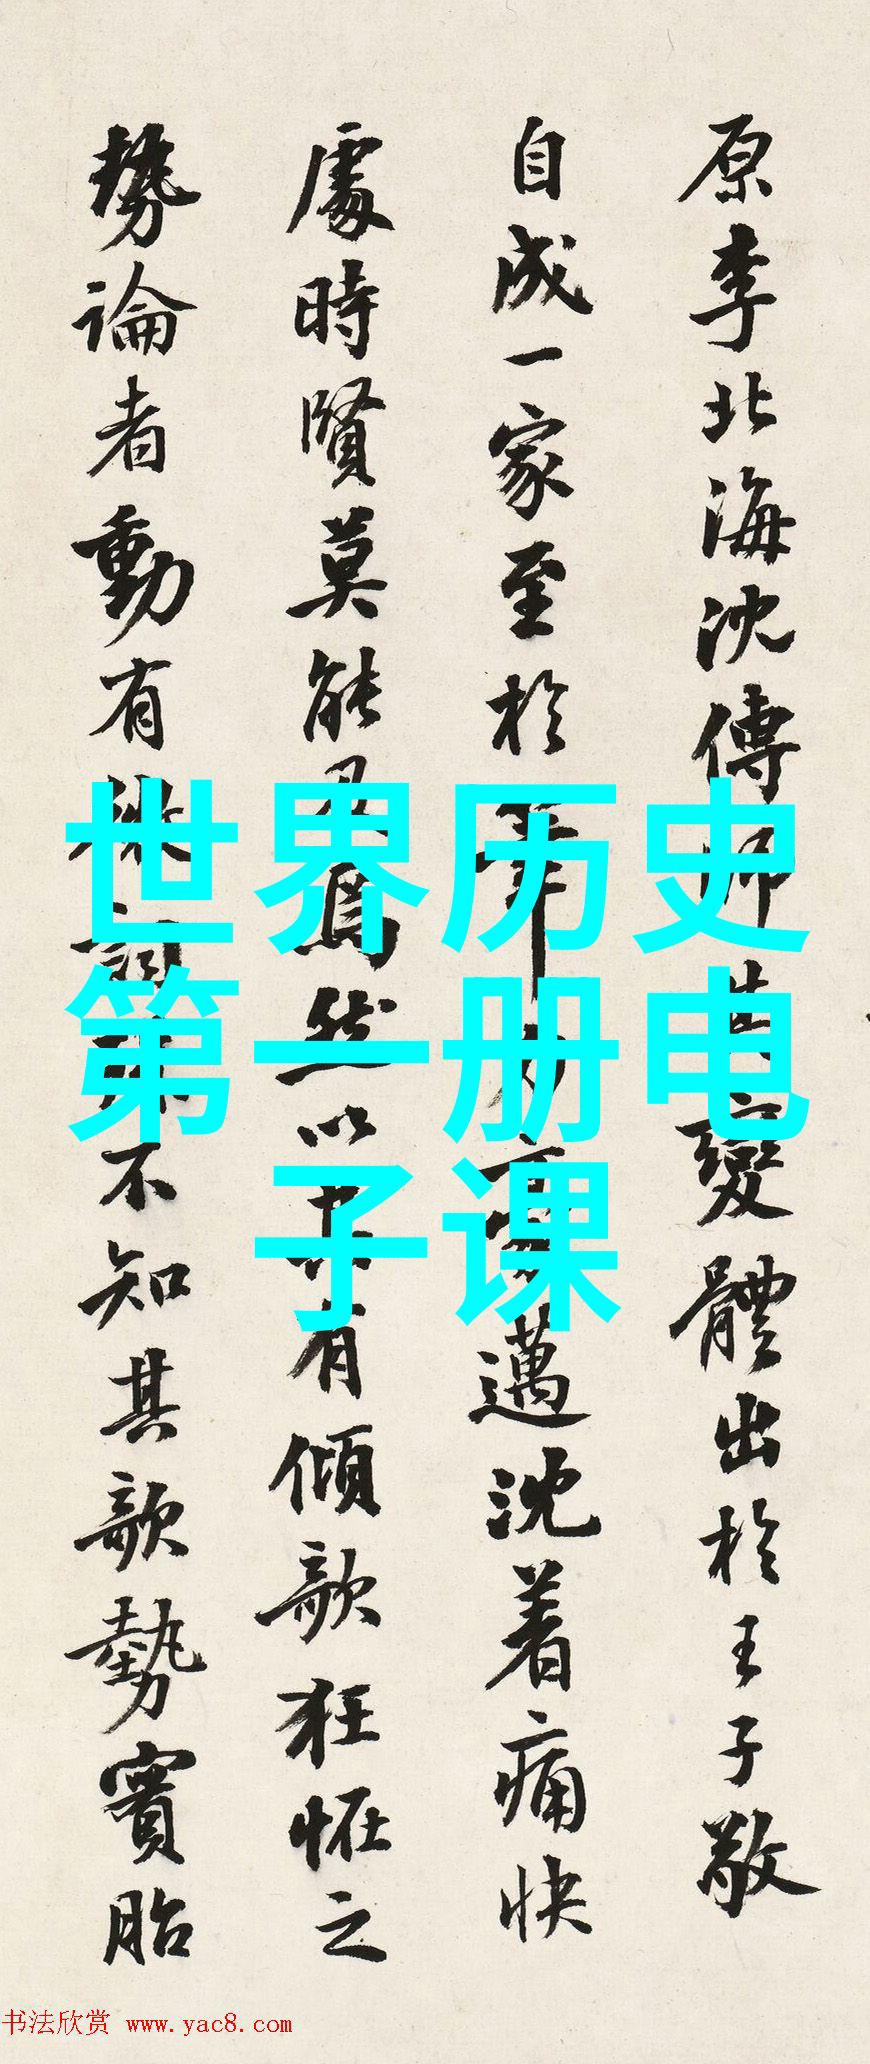 原李北海沈傳師
變體出於王子敬
自成一家至於
邁沈着痛快
處時賢莫能及爲然以
有傾欹狂怪之
勢論者動有
不知其欹勢實胎
世界历史
第一册电
子课
书法欣赏 www.yac8.com